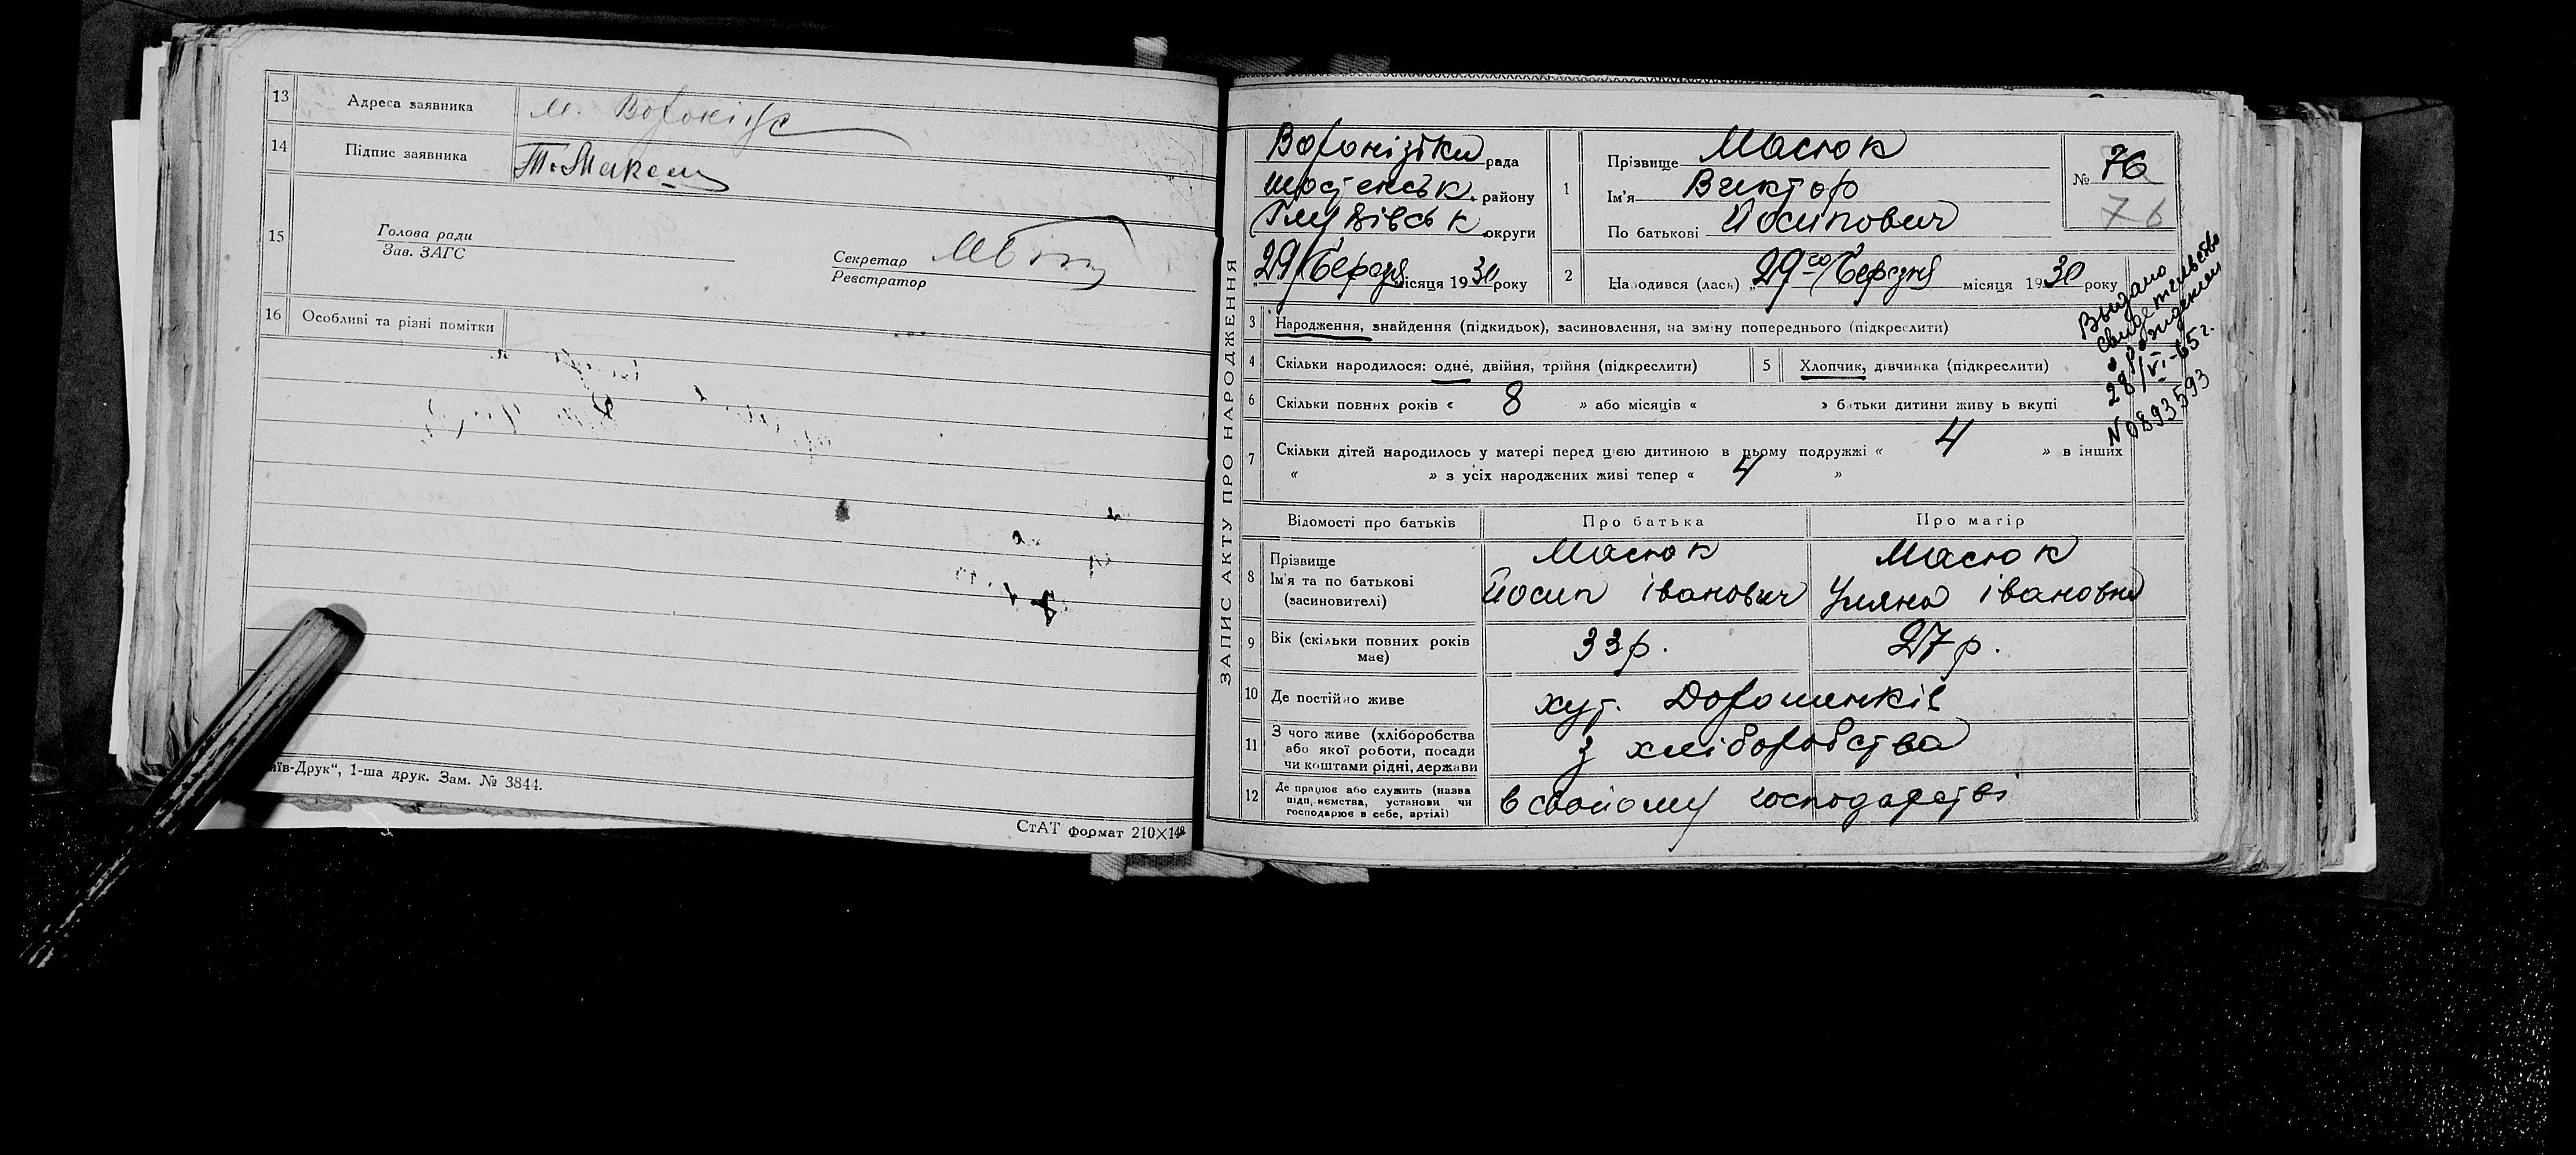 13 Адреса заявника м. Вороніж
14 Підпис заявника
15 Голова ради
Зав. ЗАГС
Секретар
Реєстратор
16 Особливі та різні помітки
їв-Друк“, 1-ша друк. Зам. № 3844.
СтАТ формат 210×148
ЗАПИС АКТУ ПРО НАРОДЖЕННЯ
рада
Шостенськ. району
Глухівськ округи
29 Березня місяця 1930 року
1 Прізвище Масюк
Ім'я Виктор
По батькові Йосипович
№ 76
76
2 Народився (лась) „29го Березня місяця 1930 року
3 Народження, знайдення (підкидьок), засиновлення, на зміну попереднього (підкреслити)
4 Скільки народилося: одне, двійня, трійня (підкреслити) 5 Хлопчик, дівчинка (підкреслити)
6 Скільки повних років « 8 » або місяців « » батьки дитини живуть вкупі
7 Скільки дітей народилось у матері перед цією дитиною в цьому подружжі « 4 » в інших
« » з усіх народжених живі тепер « 4 »
Выдано
свидетельство
о рождении
28/VI-65 г.
N 0893593
Відомості про батьків Про батька Про матір
8 Прізвище Масюк Масюк
Ім'я та по батькові Йосип Іванович Уляна Івановна
(засиновителі)
9 Вік (скільки повних років має) 33 р. 27 р.
10 Де постійно живе хут. Дорошенків
11 З чого живе (хліборобства
або якої роботи, посади
чи коштами рідні, держави з хліборобства
12 Де працює або служить (назва
підприємства, установи чи
господарює в себе, артілі) в свойому господарстві